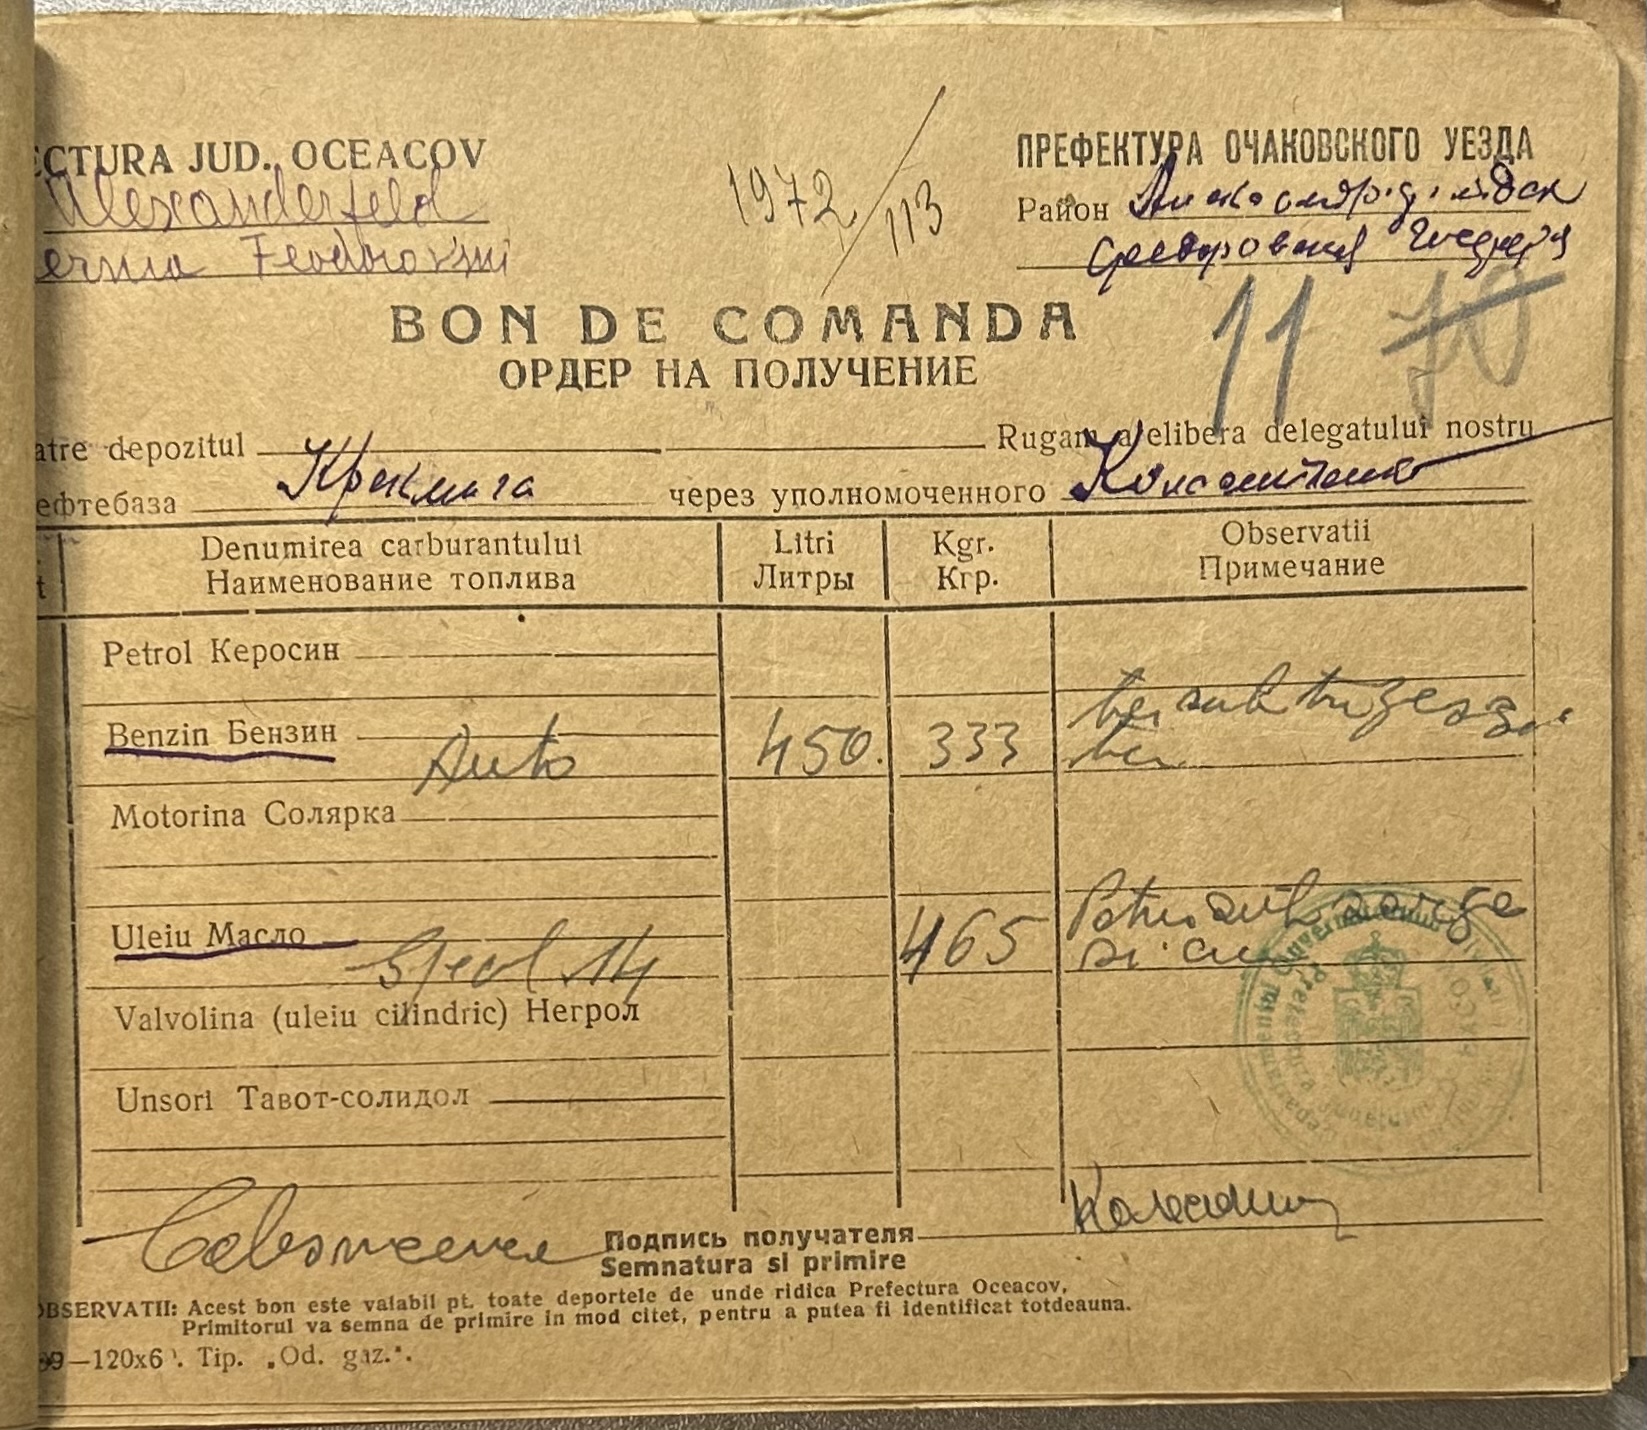 ECTURA JUD. OCEACOV
ПРЕФЕКТУРА ОЧАКОВСКОГО УЕЗДА
Alexanderfeld
1972/113
Район
Feodorovni
BON DE COMANDA
11 70
ОРДЕР НА ПОЛУЧЕНИЕ
atre depozitul Rugam a elibera delegatului nostru
ефтебаза через уполномоченного
Denumirea carburantului Litri Kgr. Observatii
Наименование топлива Литры Кгр. Примечание
Petrol Керосин
Benzin Бензин Auto 450. 333 trei sute treizeci
trei
Motorina Солярка
Uleiu Масло 14 465 Patru sute
si
Valvolina (uleiu cilindric) Негрол
Unsori Тавот-солидол
Подпись получателя
Semnatura si primire
OBSERVATII: Acest bon este valabil pt. toate deportele de unde ridica Prefectura Oceacov,
Primitorul va semna de primire in mod citet, pentru a putea fi identificat totdeauna.
—120x6 . Tip. „Od. gaz.".